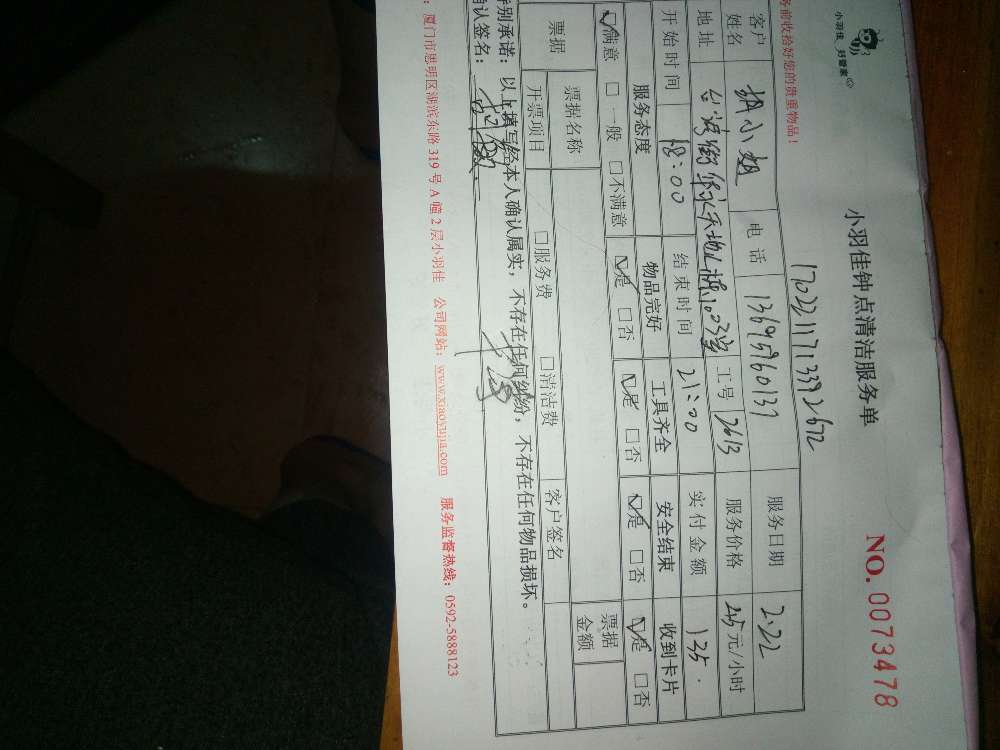 小羽佳 好管家
务前收拾好您的贵重物品!
小羽佳钟点清洁服务单
NO. 0073478
1702211713392672
客户姓名 胡小姐 电话 13695960137 服务日期 2.22
地址 台湾街 天地 工号 2613 服务价格 45元/小时
开始时间 18:00 结束时间 21:00 实付金额 135.
服务态度 物品完好 工具齐全 安全结束 收到卡片
☑满意 □一般 □不满意 ☑是 □否 ☑是 □否 ☑是 □否 ☑是 □否
票据 票据名称 票据金额
开票项目 □服务费 □清洁费 客户签名
特别承诺:以上填写经本人确认属实,不存在任何纠纷,不存在任何物品损坏。
确认签名:
:厦门市思明区湖滨东路319号A幢2层小羽佳 公司网站:www.xiaoyujia.com 服务监督热线:0592-5888123